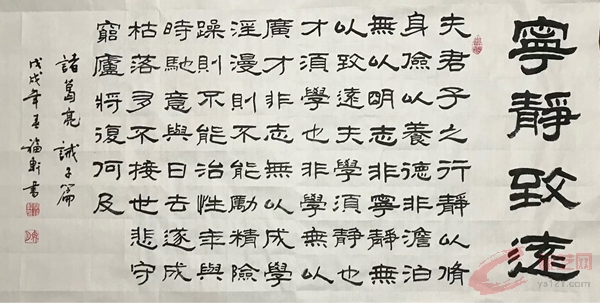 寧靜致遠
夫君子之行靜以脩
身儉以養德非澹泊
無以明志非寧靜無
以致遠夫學須靜也
才須學也非學無以
廣才非志無以成學
淫漫則不能勵精險
躁則不能治性年與
時馳意與日去遂成
枯落多不接世悲守
窮廬將復何及
諸葛亮 誡子篇
戊戌年春福軒書